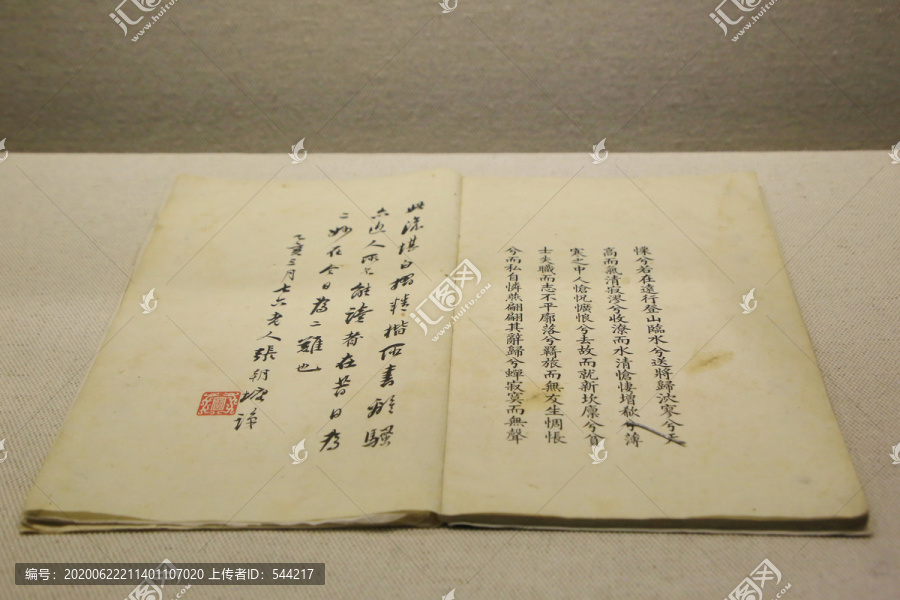 慄兮若在遠行登山臨水兮送將歸泬寥兮天
高而氣清寂漻兮收潦而水清愴悽增欷兮薄
寒之中人愴怳懭悢兮去故而就新坎廩兮貧
士失職而志不平廓落兮羇旅而無友生惆悵
兮而私自憐燕翩翩其辭歸兮蟬寂寞而無聲
此深棋白摺精楷所書離騷
六近人所不能讀者在昔日為
二妙在今日為二難也
乙亥三月七六老人張朝墉識
编号：20200622211401107020 上传者ID：544217